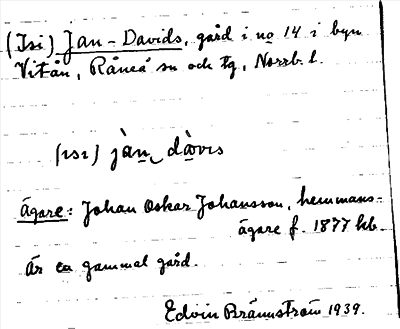 (Isi) Jan-Davids, gård i no 14 i byn
Vitån, Råneå sn och tg, Norrb. l.
(ısı) jàn dàvıs
ägare: Johan Oskar Johansson, hemmans-
ägare f. 1877 hb.
Är en gammal gård.
Edvin Brännström 1939.